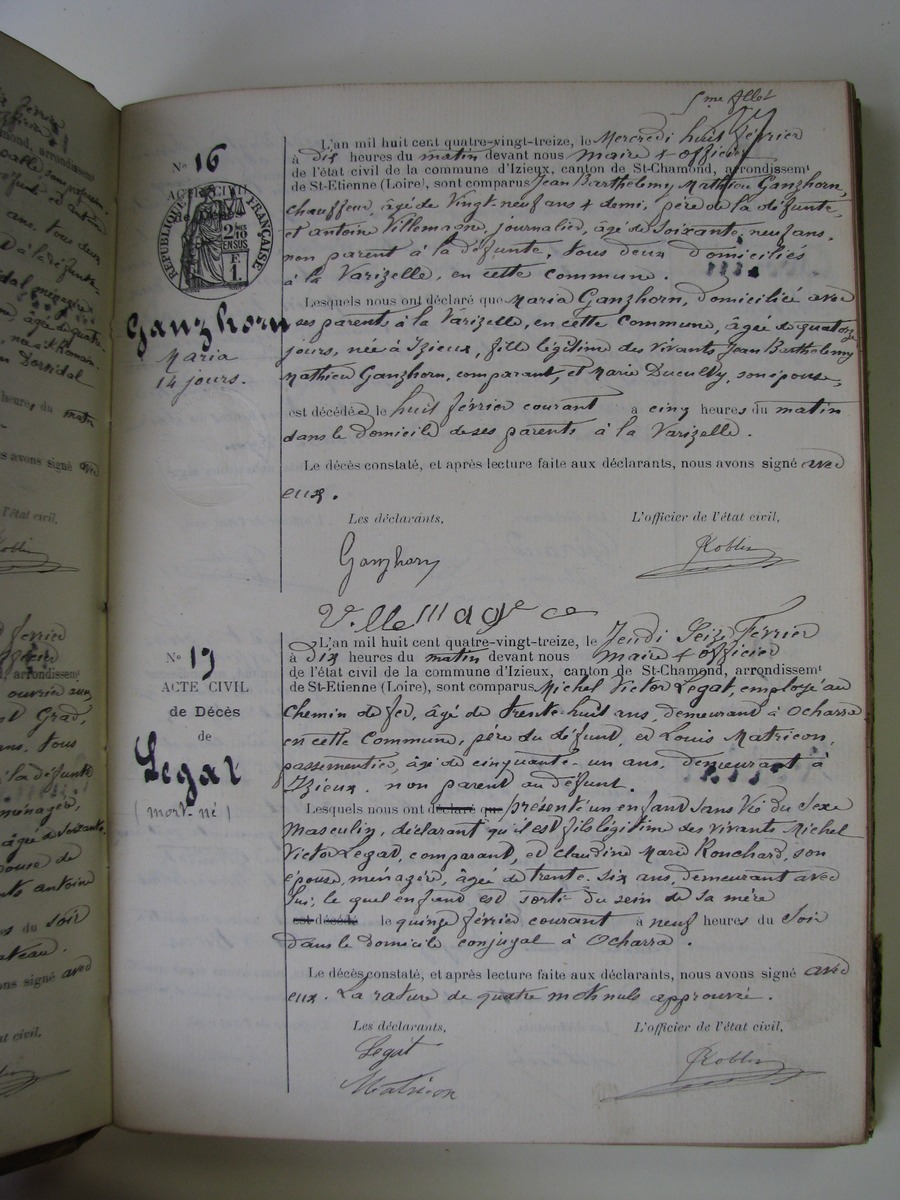 5me
No 16
ACTE CIVIL
de Décès
RÉPUBLIQUE FRANÇAISE
2/10 EN SUS
F. 1.
Ganzhorn
Maria
14 jours.
L'an mil huit cent quatre-vingt-treize, le Mercredi huit février
à dix heures du matin devant nous Maire & officier
de l'état civil de la commune d'Izieux, canton de St-Chamond, arrondissemt
de St-Etienne (Loire), sont comparus Jean Barthelemy Mathieu Ganzhorn,
chauffeur, âgé de Vingt-neuf ans & demi, père de la défunte,
et antoine Villemagne, journalier, âgé de soixante, neuf ans,
non parent à la défunte, tous deux domiciliés
à la Varizelle, en cette commune.
Lesquels nous ont déclaré que Maria Ganzhorn, domiciliée avec
ses parents à la Varizelle, en cette Commune, âgée de quatorze
jours, née à Izieux, fille légitime des vivants Jean Barthelemy
Mathieu Ganzhorn, comparant, et Marie son épouse,
est décédée le huit février courant à cinq heures du matin
dans le domicile de ses parents à la Varizelle.
Le décès constaté, et après lecture faite aux déclarants, nous avons signé avec
eux.
Les déclarants, L'officier de l'état civil,
Ganzhorn
Villemagne
No 17
ACTE CIVIL
de Décès
de
Legat
(mort-né)
L'an mil huit cent quatre-vingt-treize, le Jeudi Seize Février
à dix heures du matin devant nous Maire & officier
de l'état civil de la commune d'Izieux, canton de St-Chamond, arrondissemt
de St-Etienne (Loire), sont comparus Michel Victor Legat, employé au
Chemin de fer, âgé de trente-huit ans, demeurant à Ocharra
en cette Commune, père du défunt, et Louis Matricon,
passementier, âgé de cinquante-un ans, demeurant à
Izieux. non parent au défunt.
Lesquels nous ont déclaré que présenté un enfant Sans Vie du Sexe
Masculin, déclarant qu'il est fils légitime des vivants Michel
Victor Legat, comparant, et Claudine Marie Ronchard, son
épouse, ménagère, âgée de trente-six ans, demeurant avec
lui, le quel enfant est sorti du sein de sa mère
est décédé le quinze février courant à neuf heures du Soir
dans le domicile conjugal à Ocharra.
Le décès constaté, et après lecture faite aux déclarants, nous avons signé avec
eux. La rature de quatre mots nuls approuvée.
Les déclarants, L'officier de l'état civil,
Legat
Matricon